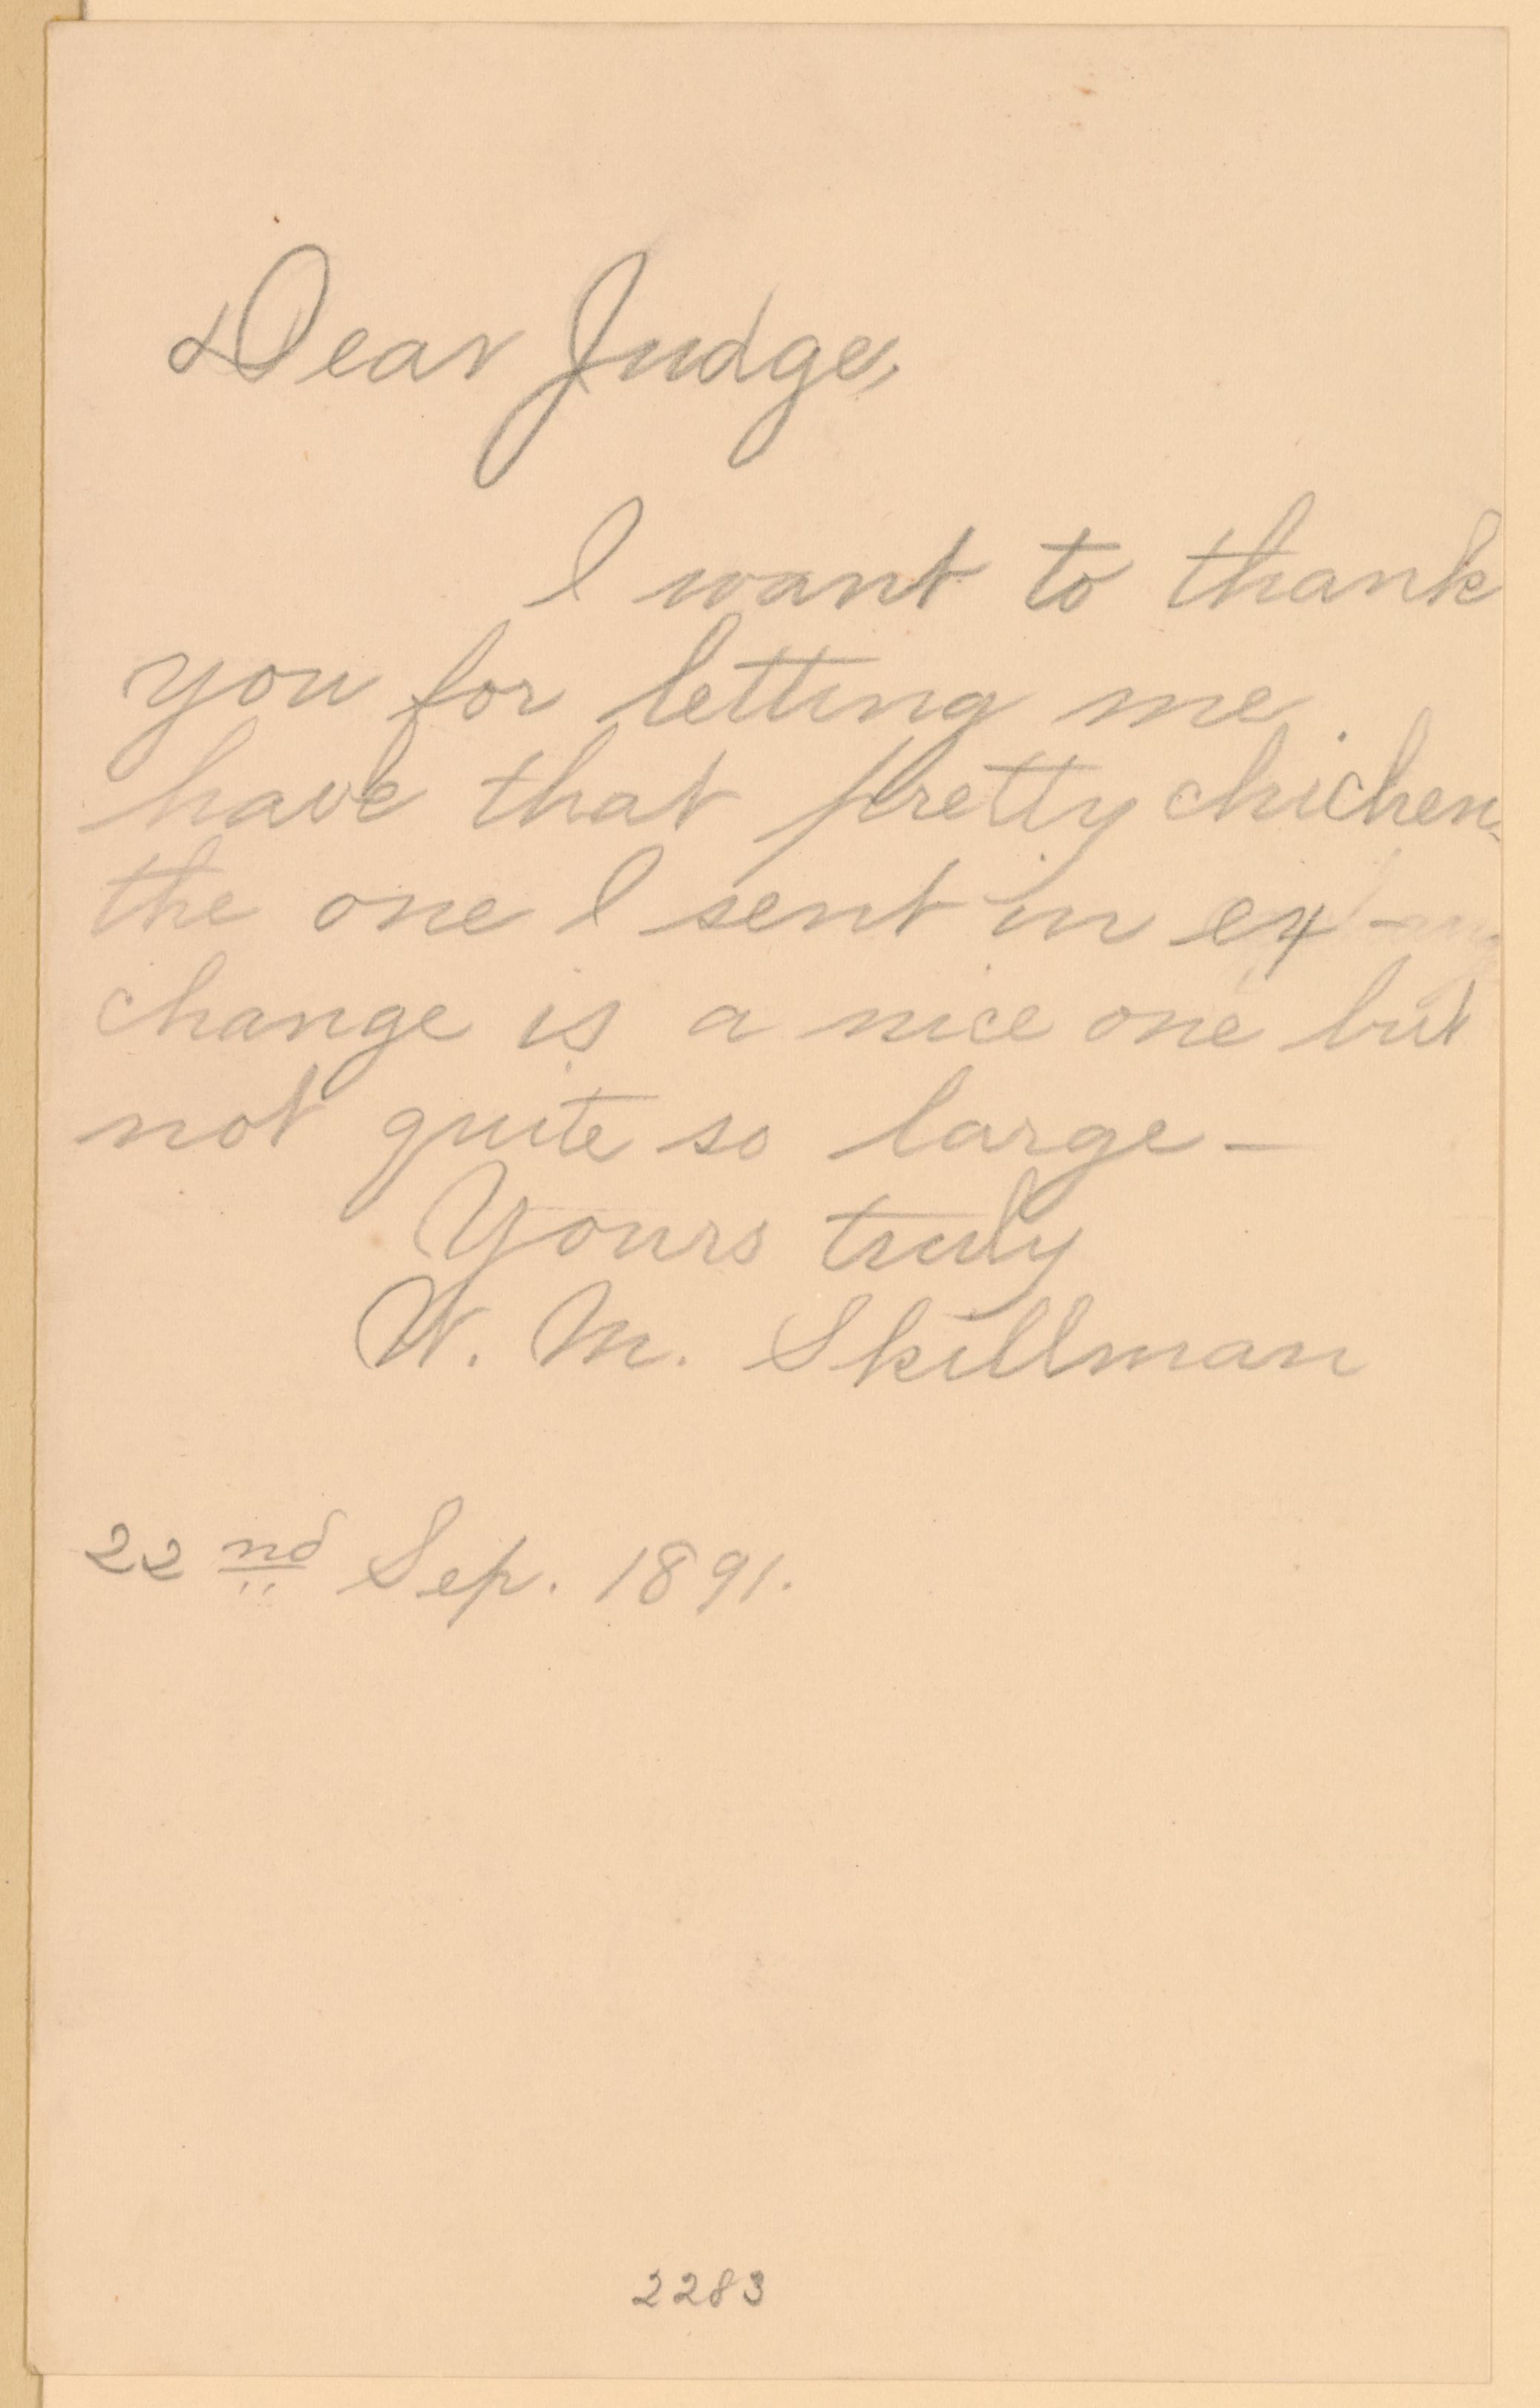 Dear Judge,
I want to thank
you for letting me
have that pretty chicken.
the one I sent in ex-
change is a nice one but
not quite so large -
Yours truly
W. M. Skillman
22nd Sep. 1891.
2283